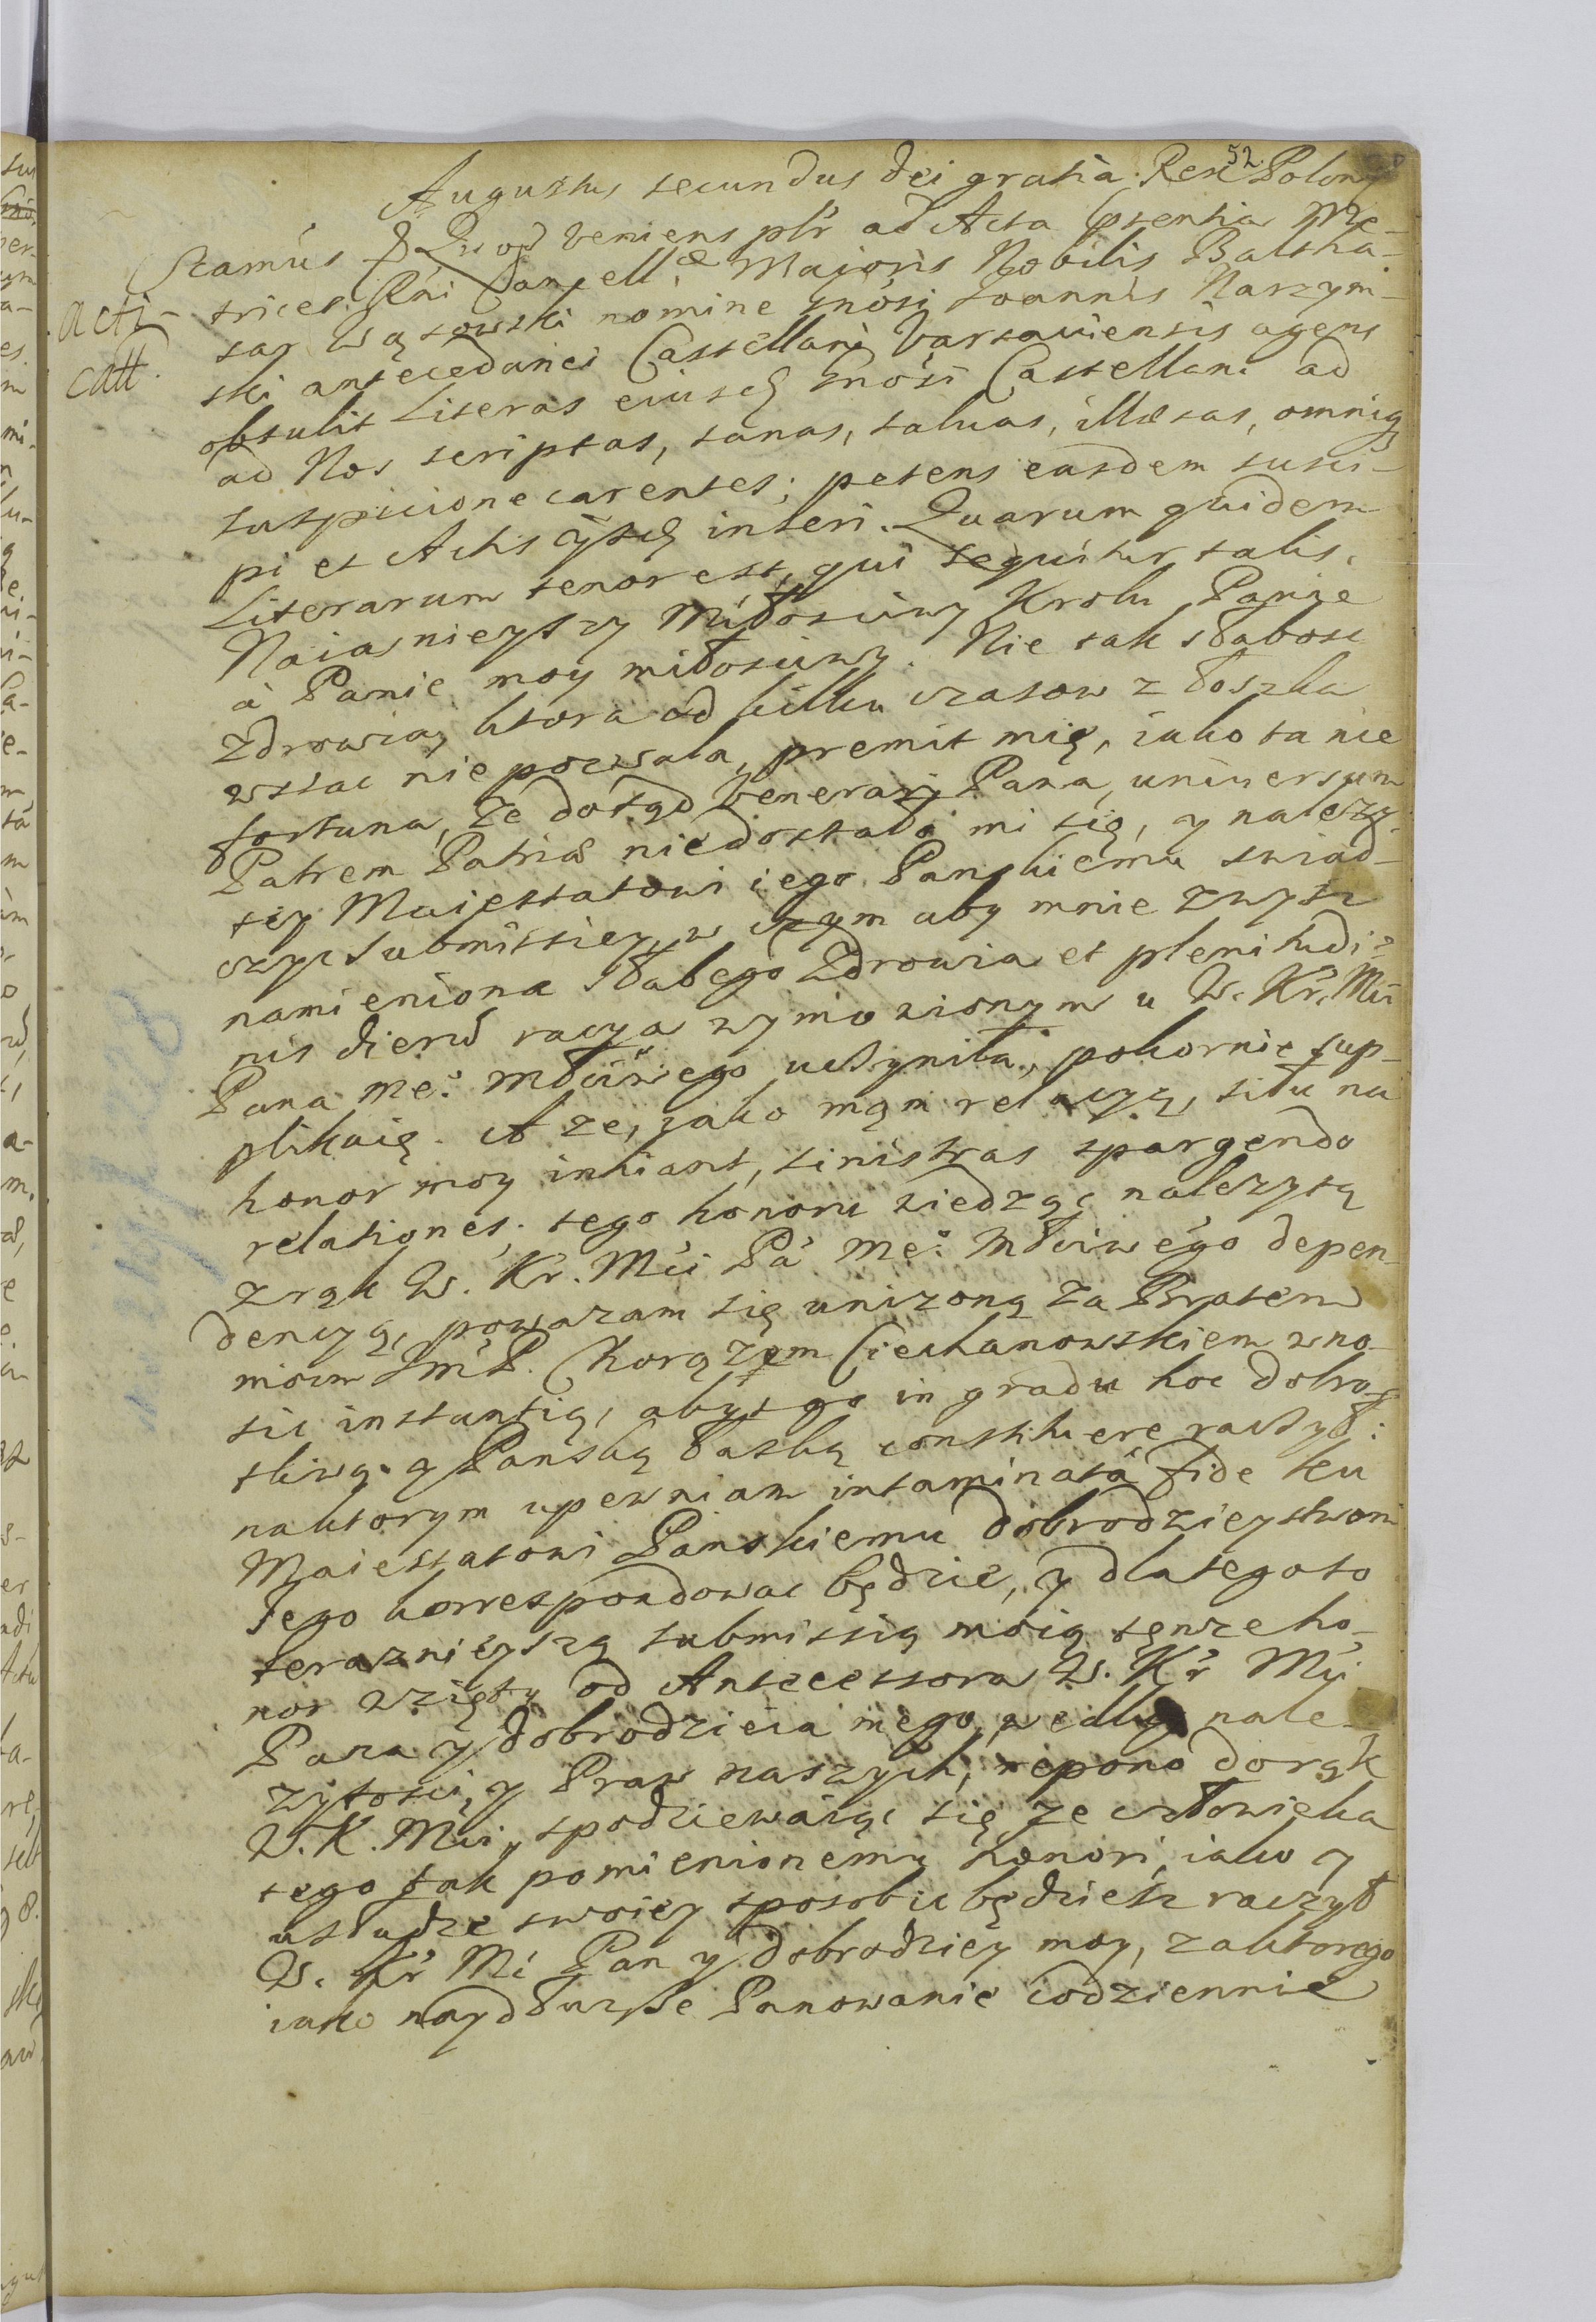 52
Augustus secundus dei gratia Rex Polony
Stamus Quod veniens plr ad Acta psentia Me-
trices Rni Cancell: Majoris Nobilis Baltha-
Acti-
catt.
sar Wąsowski nomine Gnosi Joannis Narzym-
ski antecedanei Castellani Varsaviensis agens
obtulit Literas eiusd Gnosi Castellani ad
ad Nos scriptas, sanas, salvas, illæsas, omniq
suspicione carentes; petens easdem susci-
pi et Actis ijsd inseri. Quarum quidem
Literarum tenor est, qui sequitur talis.
Naiasnieyszy Miłosciwy Krolu Panie
à Panie moy miłosciwy. Nie tak słabosc
Zdrowia, ktora od kilku czasow z łoszka
wstac nie pozwala, premit mię, iako ta nie
fortuna, że dotąd venerari Pana, universum
Patrem Patriæ niedostało mi się, y należy-
tey Maiestatowi iego Panskiemu swiad-
czyc submissiey, w czym aby mnie zwysz
namieniona słabego Zdrowia et plenitudi-
nis dierū racya wymowionym u W. Kr. Mci
Pana me: Młciwego uczyniła, pokornie sup-
plikuię. A ze, iako mąm relacyą, siłu na
honor moy inhiant, sinistras spargendo
relationes; tego honoru siedząc należytą
z rąk W. Kr. Mci Pa me: Młciwego depen-
dencyą, poważam się unizoną za Bratem
moim JmP. Chorązym Ciechanowskiem wno-
sic instantią, abys go in gradu hoc dobro-
tliwą y Panską łaską constituere raczył:
naktorym upewniam intaminatâ fide ku
Maiestatowi Panskiemu dobrodzieystwom
Jego korrespondowac będzie, y dlategoto
teraznieyszą submissią moią tęnze ho-
nor wzięty od Antecessora W. Kr Mci
Pana y dobrodzieia mego, wedlug nale-
zytosci y Praw naszych, repono dorąk
W. K. Mci, spodziewaiąc się ze człowieka
tego tak pomienionemu honori, iako y
usłudze swoiey sposobic będziesz raczył
W. Kr Mć Pan y dobrodziey moy, zaktorego
iako naydłuzsze Panowanie codziennie